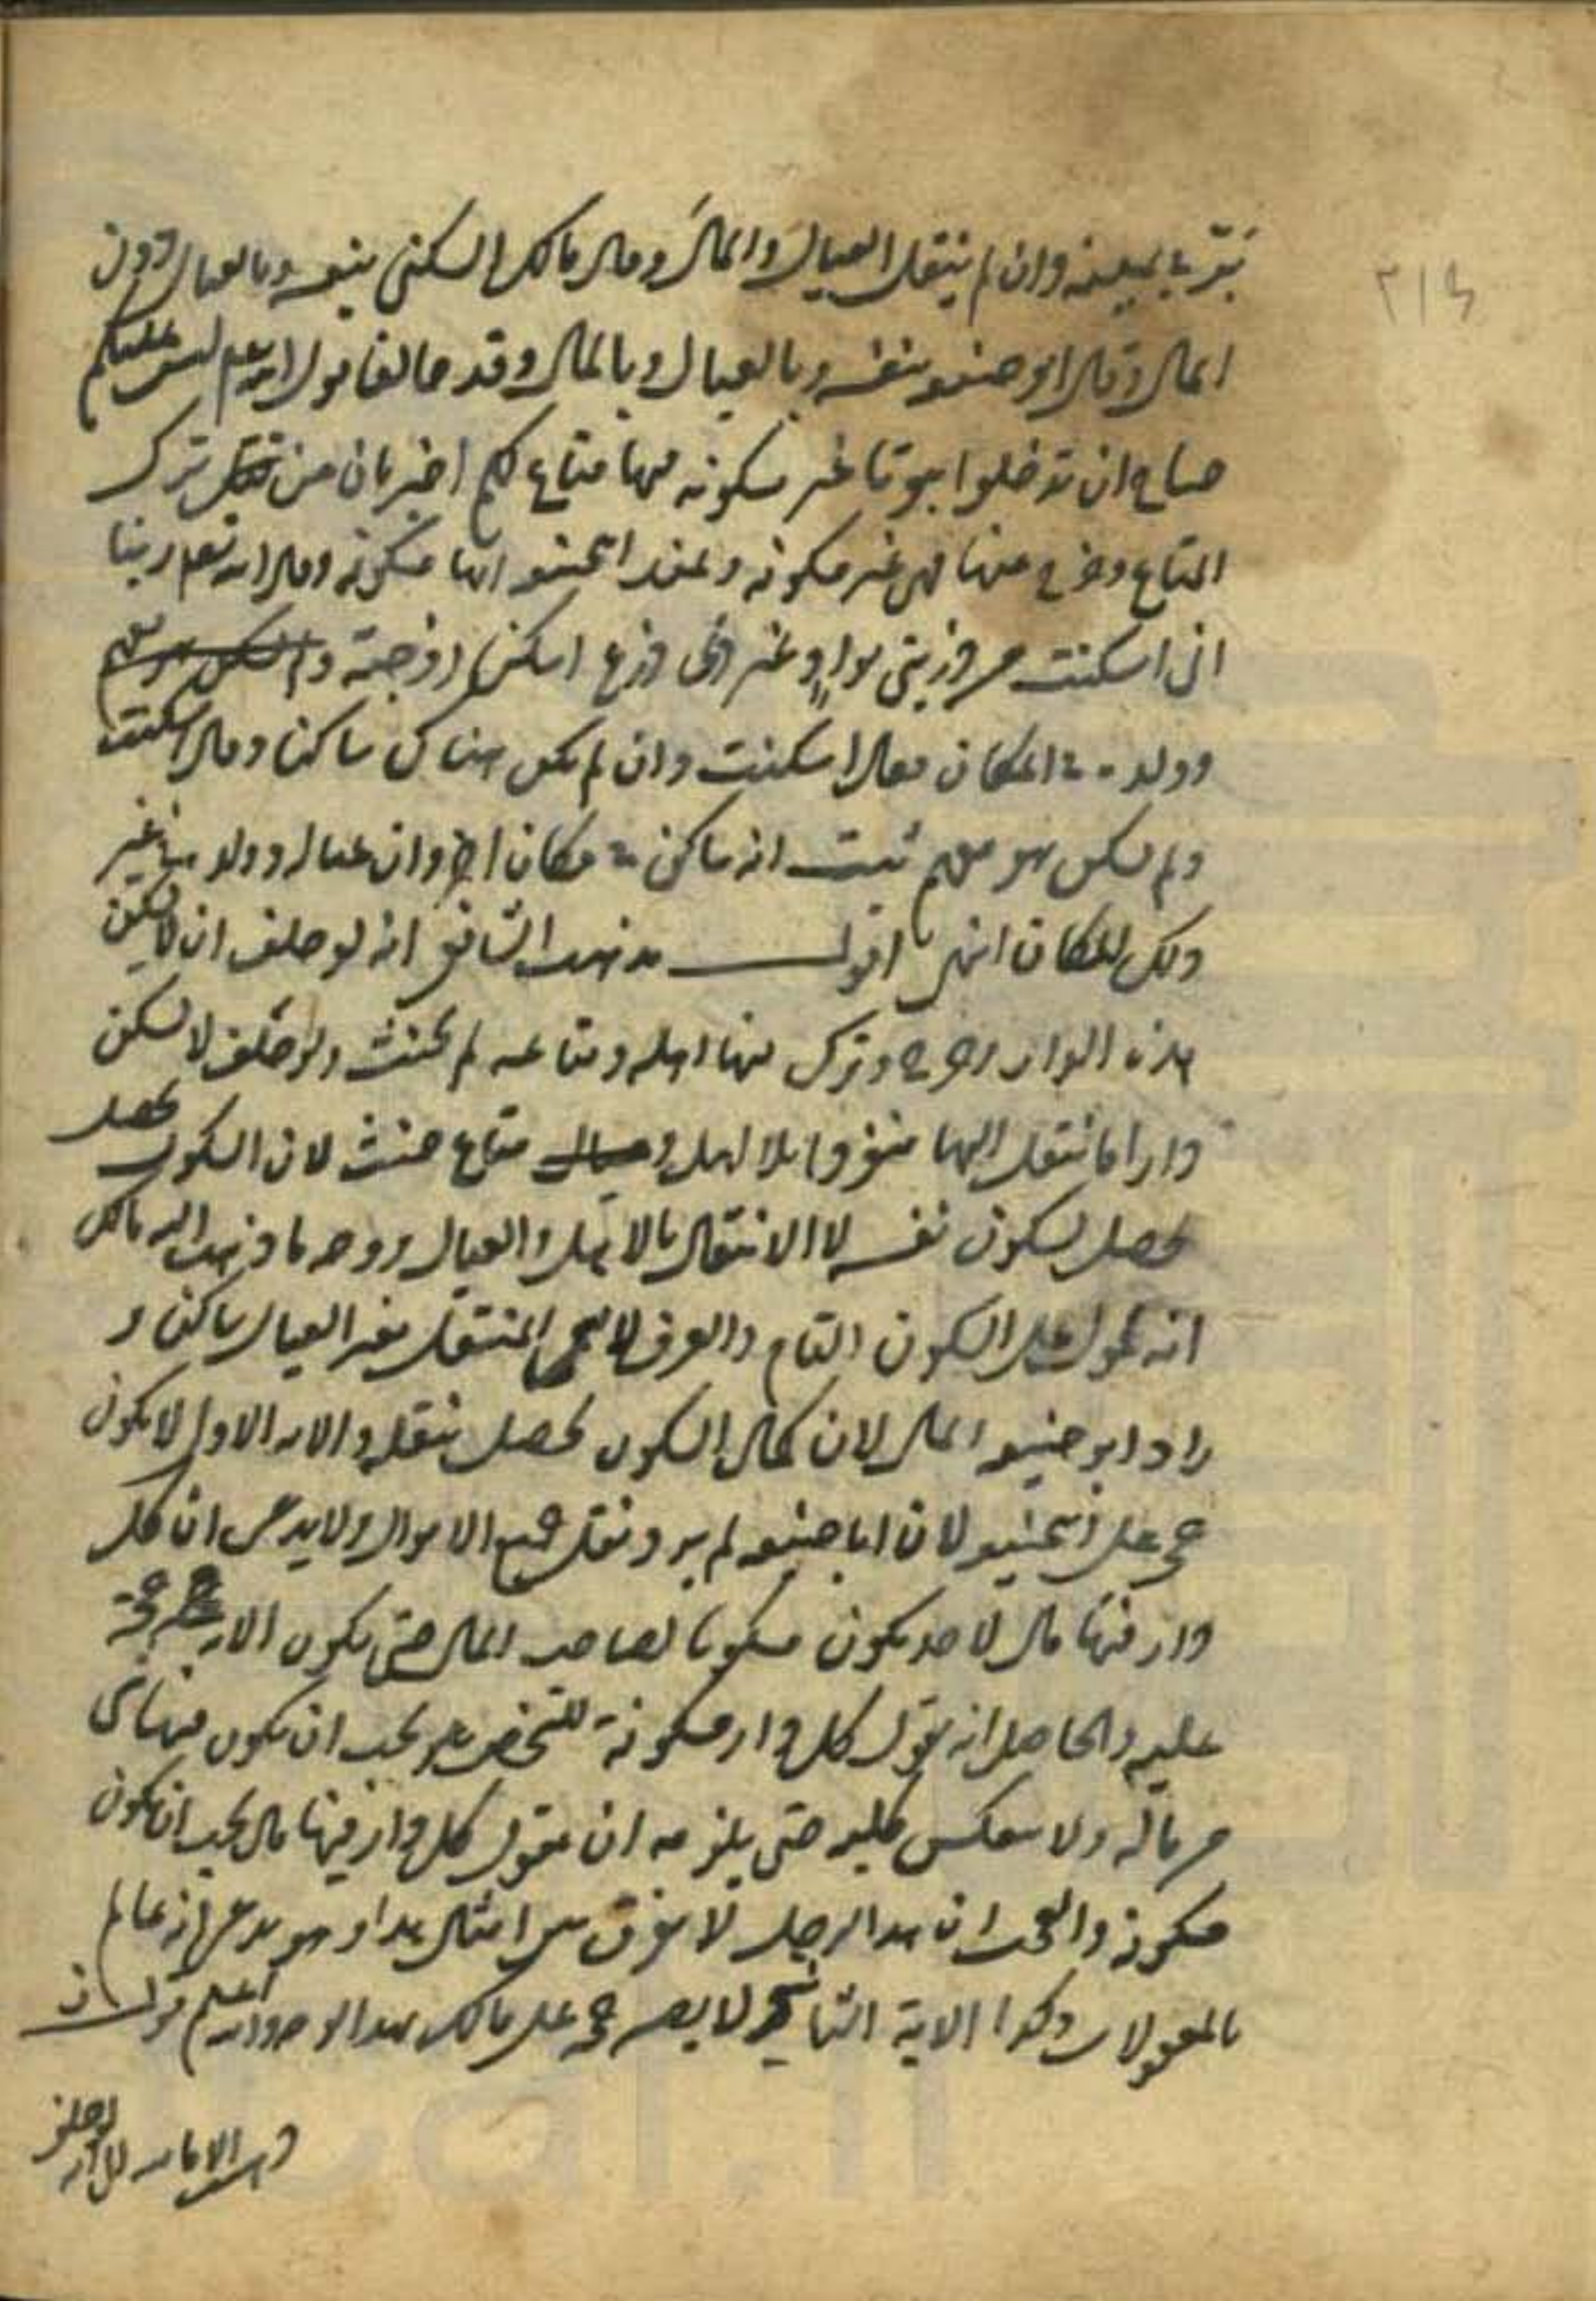 يبر في يمينه وان لم ينتقل العيال والمال وقال مالك السكنى بنفسه وبالعيال دون
المال وقال ابو حنيفه بنفسه وبالعيال وبالمال وقد خالفا قول الله تعم ليس عليكم
جناح ان تدخلوا بيوتا غير مسكونه فيها متاع لكم اخبر بان من ترك
المتاع وخرج منها فهي غير مسكونه وعند ابحنيفه انها مسكونه وقال الله تعم ربنا
انى اسكنت من ذريتى بواد غير ذى زرع اسكن زوجته
وولده في المكان فقال اسكنت وان لم يكن هناك ساكنا وقال اسكنت
ولم يكن هو معهم ثبت انه ساكن في مكان اخر وان عياله وولده في غير
ذلك المكان انتهى اقول مذهب الشافعى انه لو حلف ان لا يسكن
هذه الدار وخرج وترك فيها اهله ومتاعه لم يحنث ولو حلف لا يسكن
دارا فانتقل اليها منفردا بلا اهل و متاع حنث لان السكون يحصل
يحصل بسكون نفسه لا الانتقال بالاهل والعيال ووجه ما ذهب اليه مالك
انه محمول على السكون التام والعرف لا يسمى المنتقل بغير العيال ساكنا و
زاد ابو حنيفه المال لان كمال السكون يحصل بنقله والايه الاولى لا يكون
حجة على ابحنيفه لان ابا حنيفه لم يرد نقل جميع الاموال ولا يدعى ان كل
دار فيها مال لاحد يكون مسكونا لصاحب المال حتى يكون الايه حجة
عليه والحاصل انه يقول كل دار مسكونة للشخص يجب ان يكون فيها شى
من ماله ولا ينعكس كليه حتى يلزمه ان يقول كل دار فيها مال يجب ان يكون
مسكونه والعجب ان هذا الرجل لا يفرق بين امثال هذا وهو يدعى انه عالم
بالمعقولات وكذا الاية الثانيه لا يصير حجة على مالك بهذا الوجه والله اعلم قوله ان
ذهبت الاماميه الى انه لو حلف